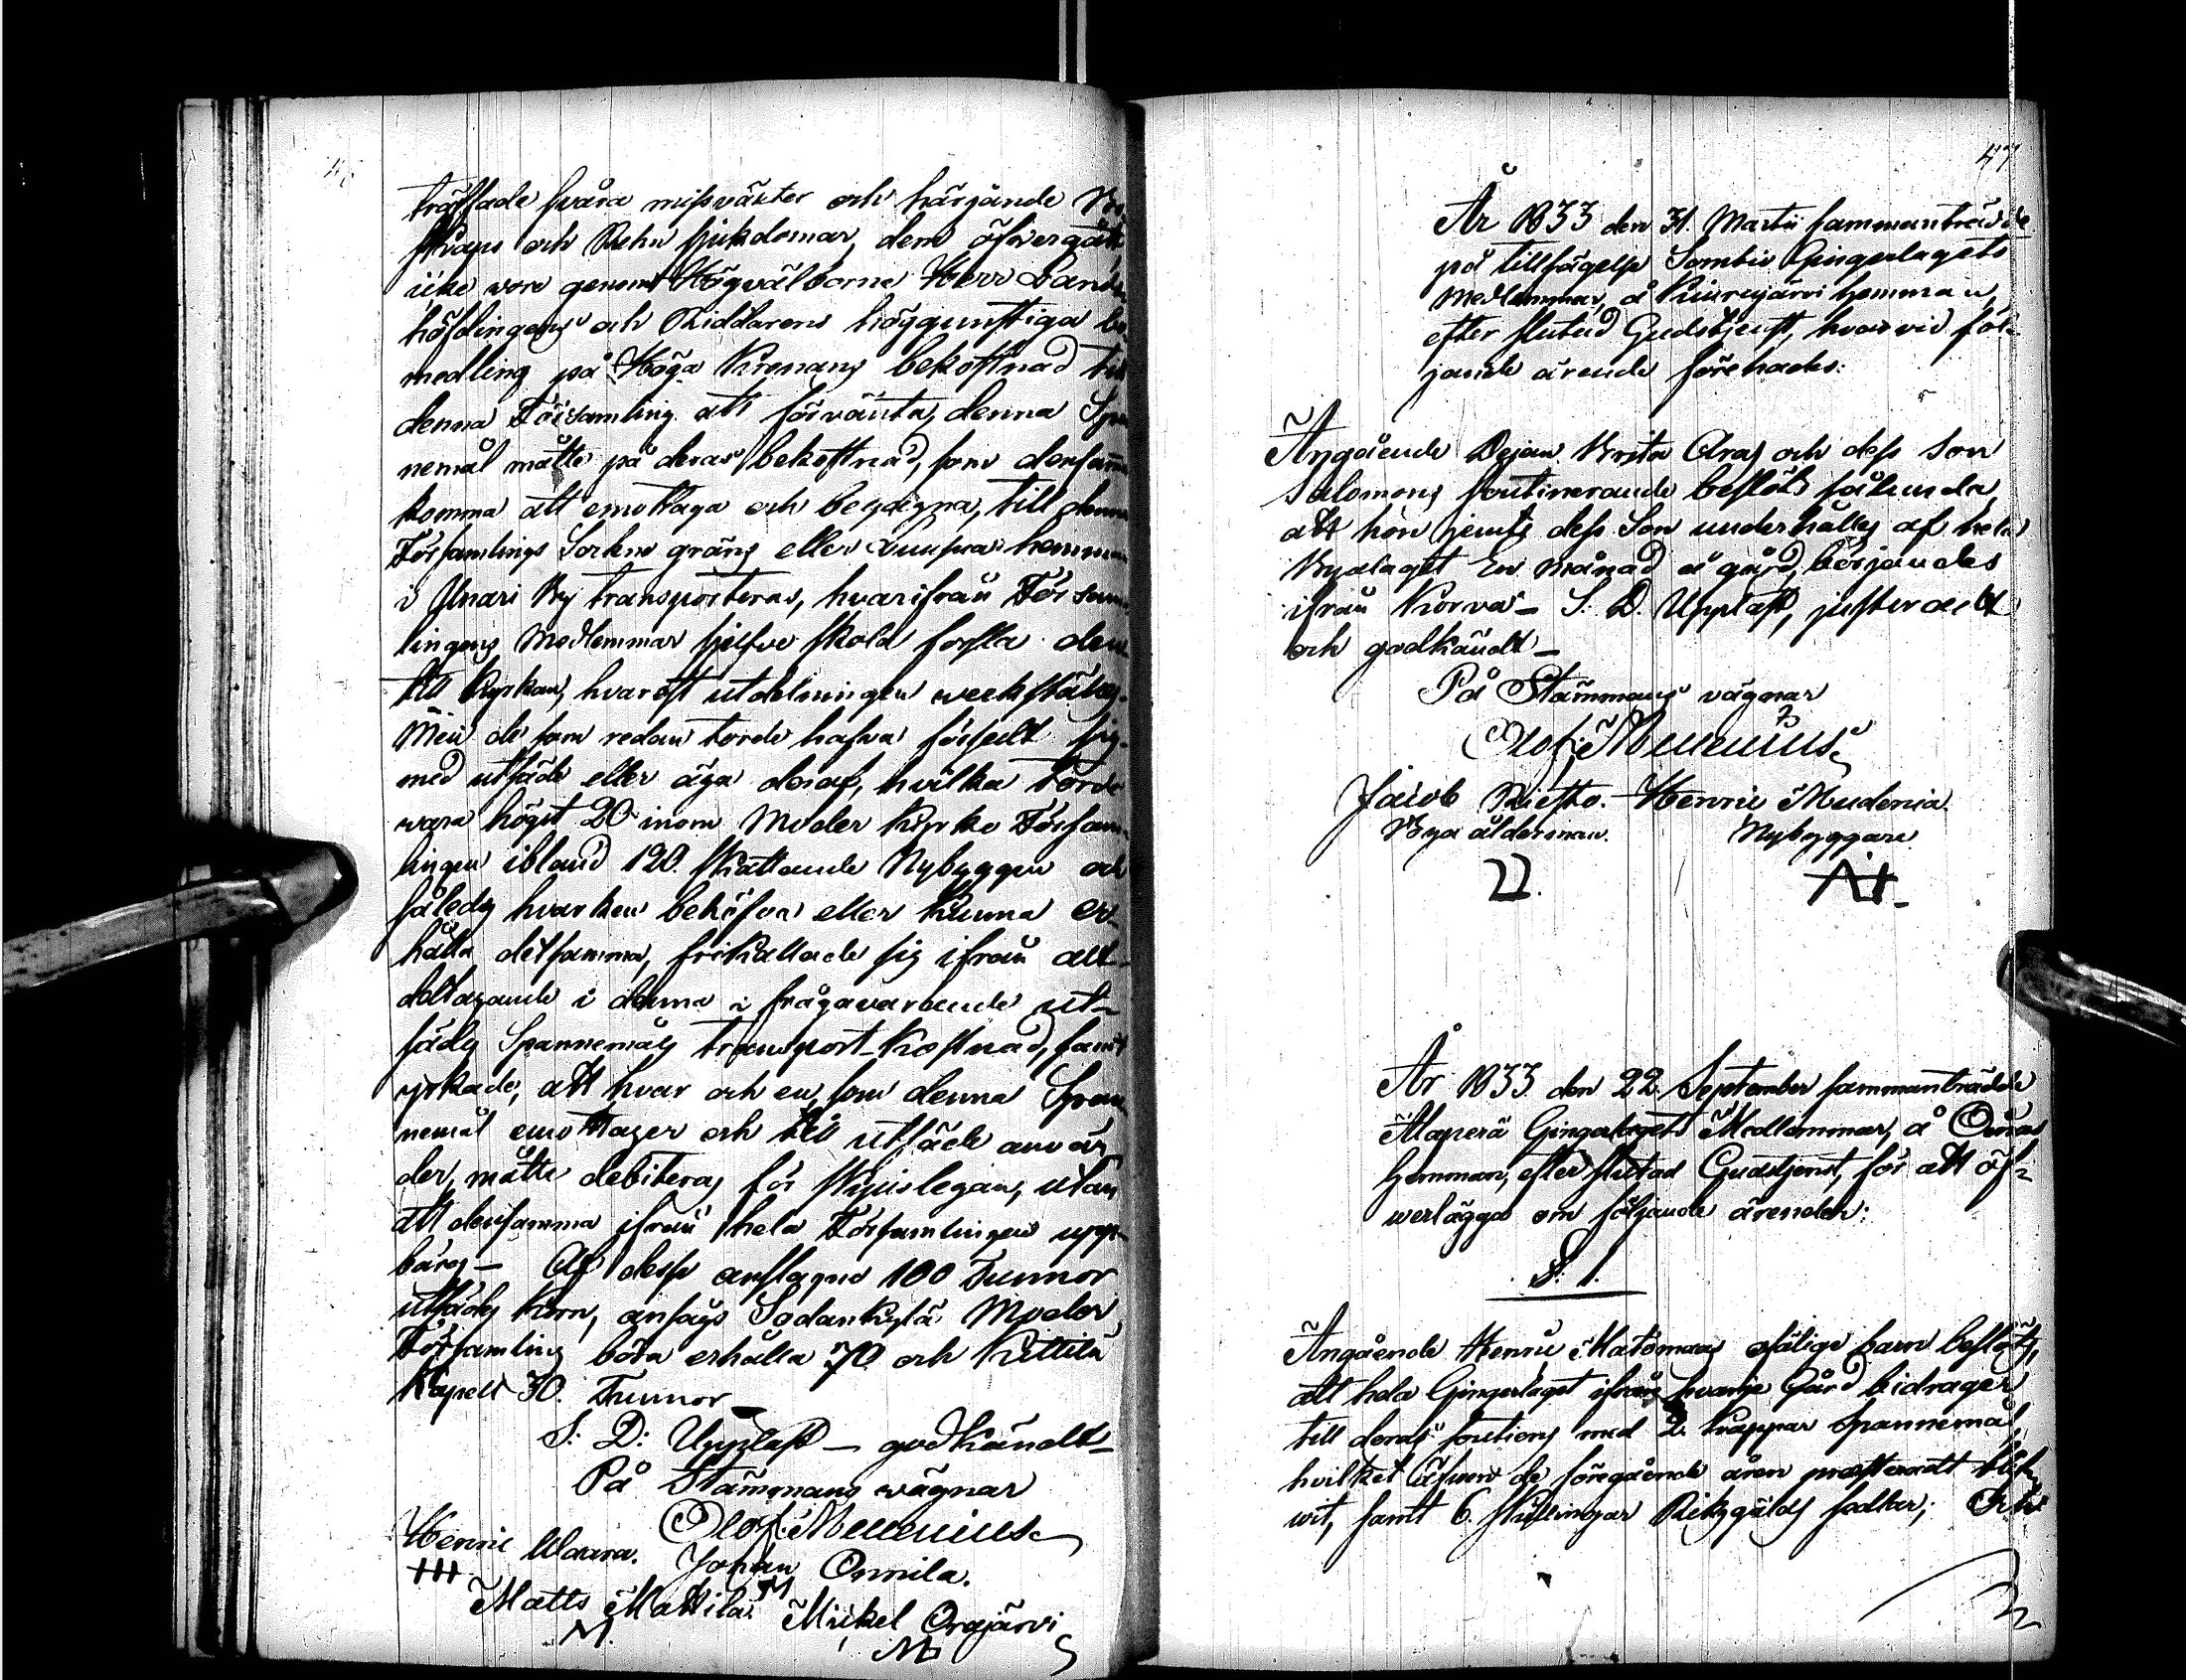 46
träffade svåra missväxter och härjande Bo-
skaps och Rehn sjukdomar, dem öfvergått,
icke vore genom Högvälborne Herr Lands-
höfdingens och Riddarens höggunstiga be-
medling på Höga Kronans bekostnad till
denna Församling att förvänta, denna Span-
nemål måtte på deras bekostnad, som densamma
komma att emottaga och begagna, till denna
Församlings Sockne gräns eller hemman
i Unari By transporteras, hvarifrån Försam-
lingens Medlemmar sjelfve skola forsla den
till Kyrkan, hvarest utdelningen werkställes.
Men de som redan torde hafva försedt sig
med utsäde eller äga deraf, hvilka torde
vara högst 20 inom Moder Kyrko Försam-
lingen ibland 120 skattande Nybyggen och
således hvarken behöfva eller kunna er-
hålla detsamma, frikallade sig ifrån allt
deltagande i denna i frågavarande ut-
sädes Spannemåls transport-kostnad, samt
yrkade, att hvar och en, som denna Span-
nemål emottager och till utsäde använ-
der, måtte debiteras för skjutslegan, utan
att densamma ifrån hela Församlingen upp-
bäres – Af dess anslagne 100 Tunnor
utsädes Korn, ansågs Sodankylä Moder
Församling böra erhålla 70 och Kittilä
Kapell 30. Tunnor
S: D: Uppläst – godkändt –
På Stämmans vägnar
Olof Mellenius
Henric Waara. Johan Onnila.
Matts Mattila. M Mickel Orajärvi
M. M
47
År 1833 den 31. Martii sammanträdde
på tillsägelse Sombio Gingerlagets
Medlemmar, å hemman,
efter slutad Gudstjenst, hvarvid föl-
jande ärende förehades:
Angående Pejan Brita Clras och dess son
Salomons soutinerande beslöts sålunda,
att hon jemte dess Son underhålles af hela
Byalaget En månad å gård, börjandes
ifrån Korva – S. D. Uppläst, justeradt
och godkändt –
På Stämmans vägnar
Olof Mellenius
Jacob Riesto. Henric Mudenia.
Bya ålderman. Nybyggare.
År 1833 den 22 September sammanträdde
Alaperä Gingerlagets Medlemmar, å
hemman, efter slutad Gudstjenst, för att öf-
werlägga om följande ärenden:
§. 1.
Angående Henric Matomaas ofälige barn beslöts,
att hela Gingerlaget ifrån hvarje Gård bidrager
till deras soutiens med 2 kappar Spannemål,
hvilket äfven de föregående åren præsteradt blif-
wit, samt 6. skillingar Riksgälds sedlar;